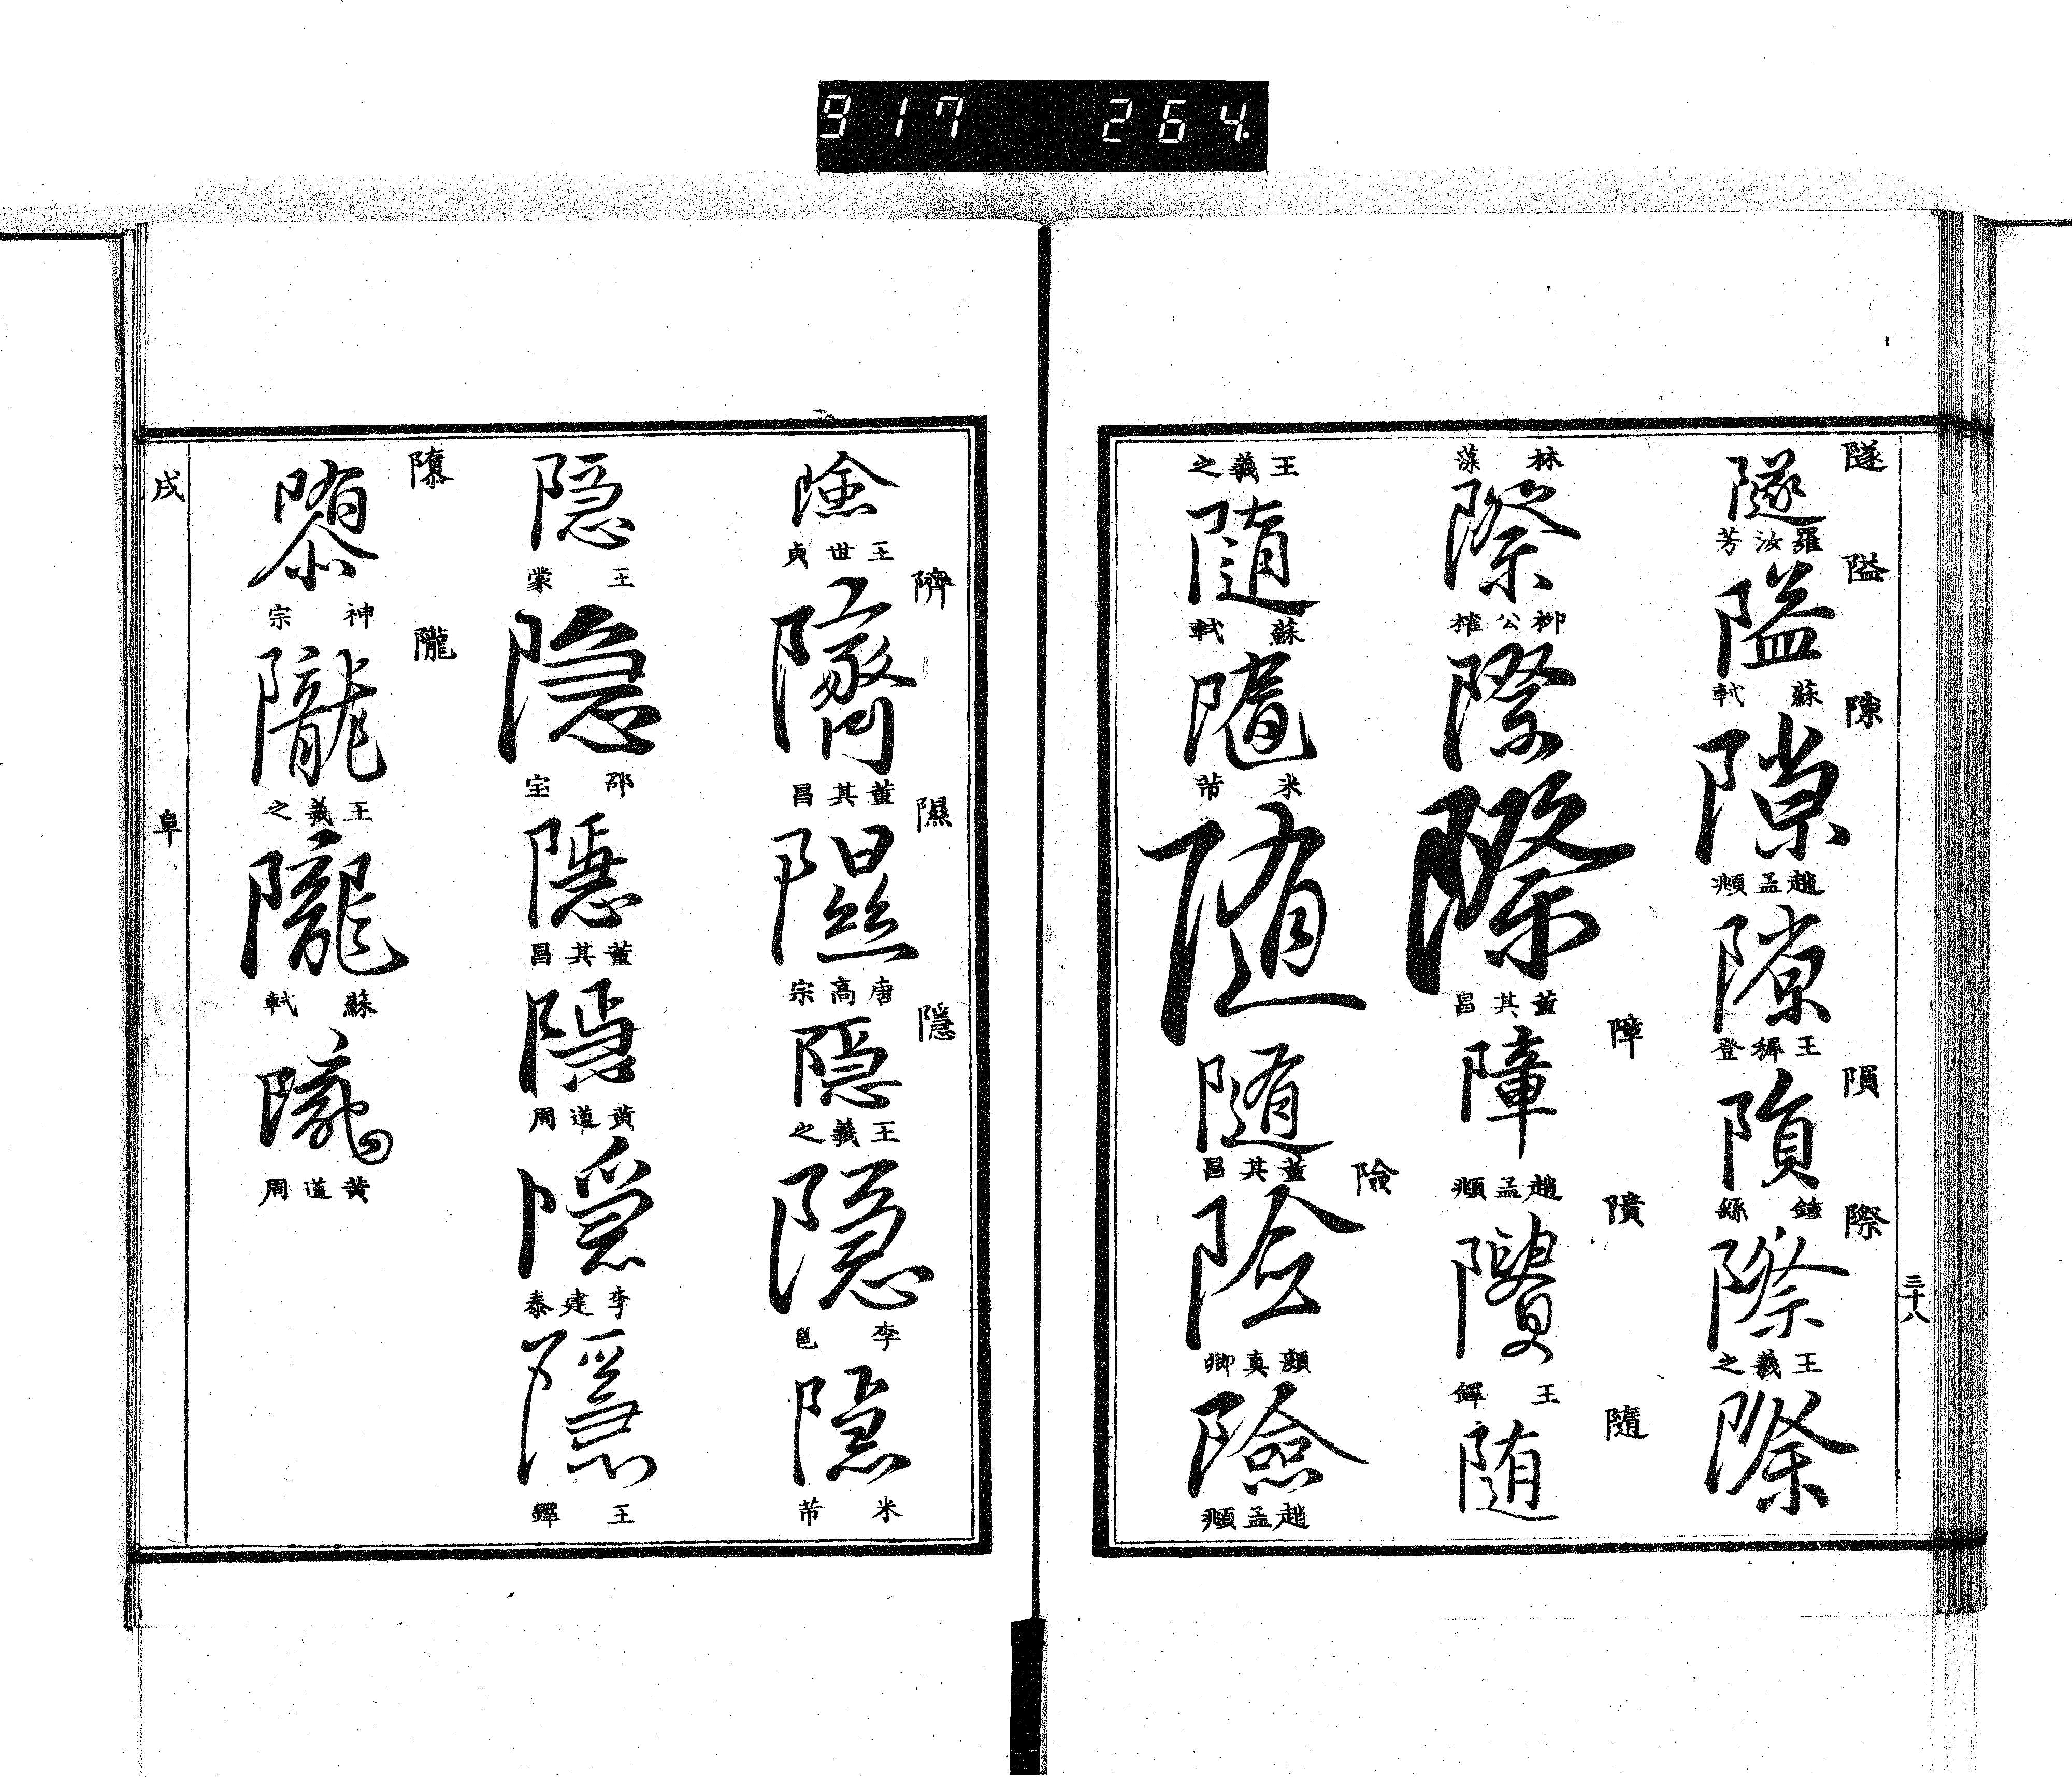 917 264.
三十八
隧
隧
羅汝芳
隘
隘
蘇軾
隙
隙
趙孟頫
隙
王穉登
隕
隕
鍾繇
際
際
王羲之
際
林藻
際
柳公權
際
際
董其昌
障
障
趙孟頫
隤
隤
王鐸
隨
隨
王羲之
隨
蘇軾
隨
米芾
隨
隨
董其昌
險
險
顏真卿
險
趙孟頫
險
王世貞
隮
隮
董其昌
隰
隰
唐高宗
隱
隱
王羲之
隱
李邕
隱
米芾
隱
王蒙
隱
邵宝
隱
董其昌
隱
黃道周
隱
李建泰
隱
王鐸
隳
神宗
隴
隴
王羲之
隴
蘇軾
隴
黃道周
戌
阜